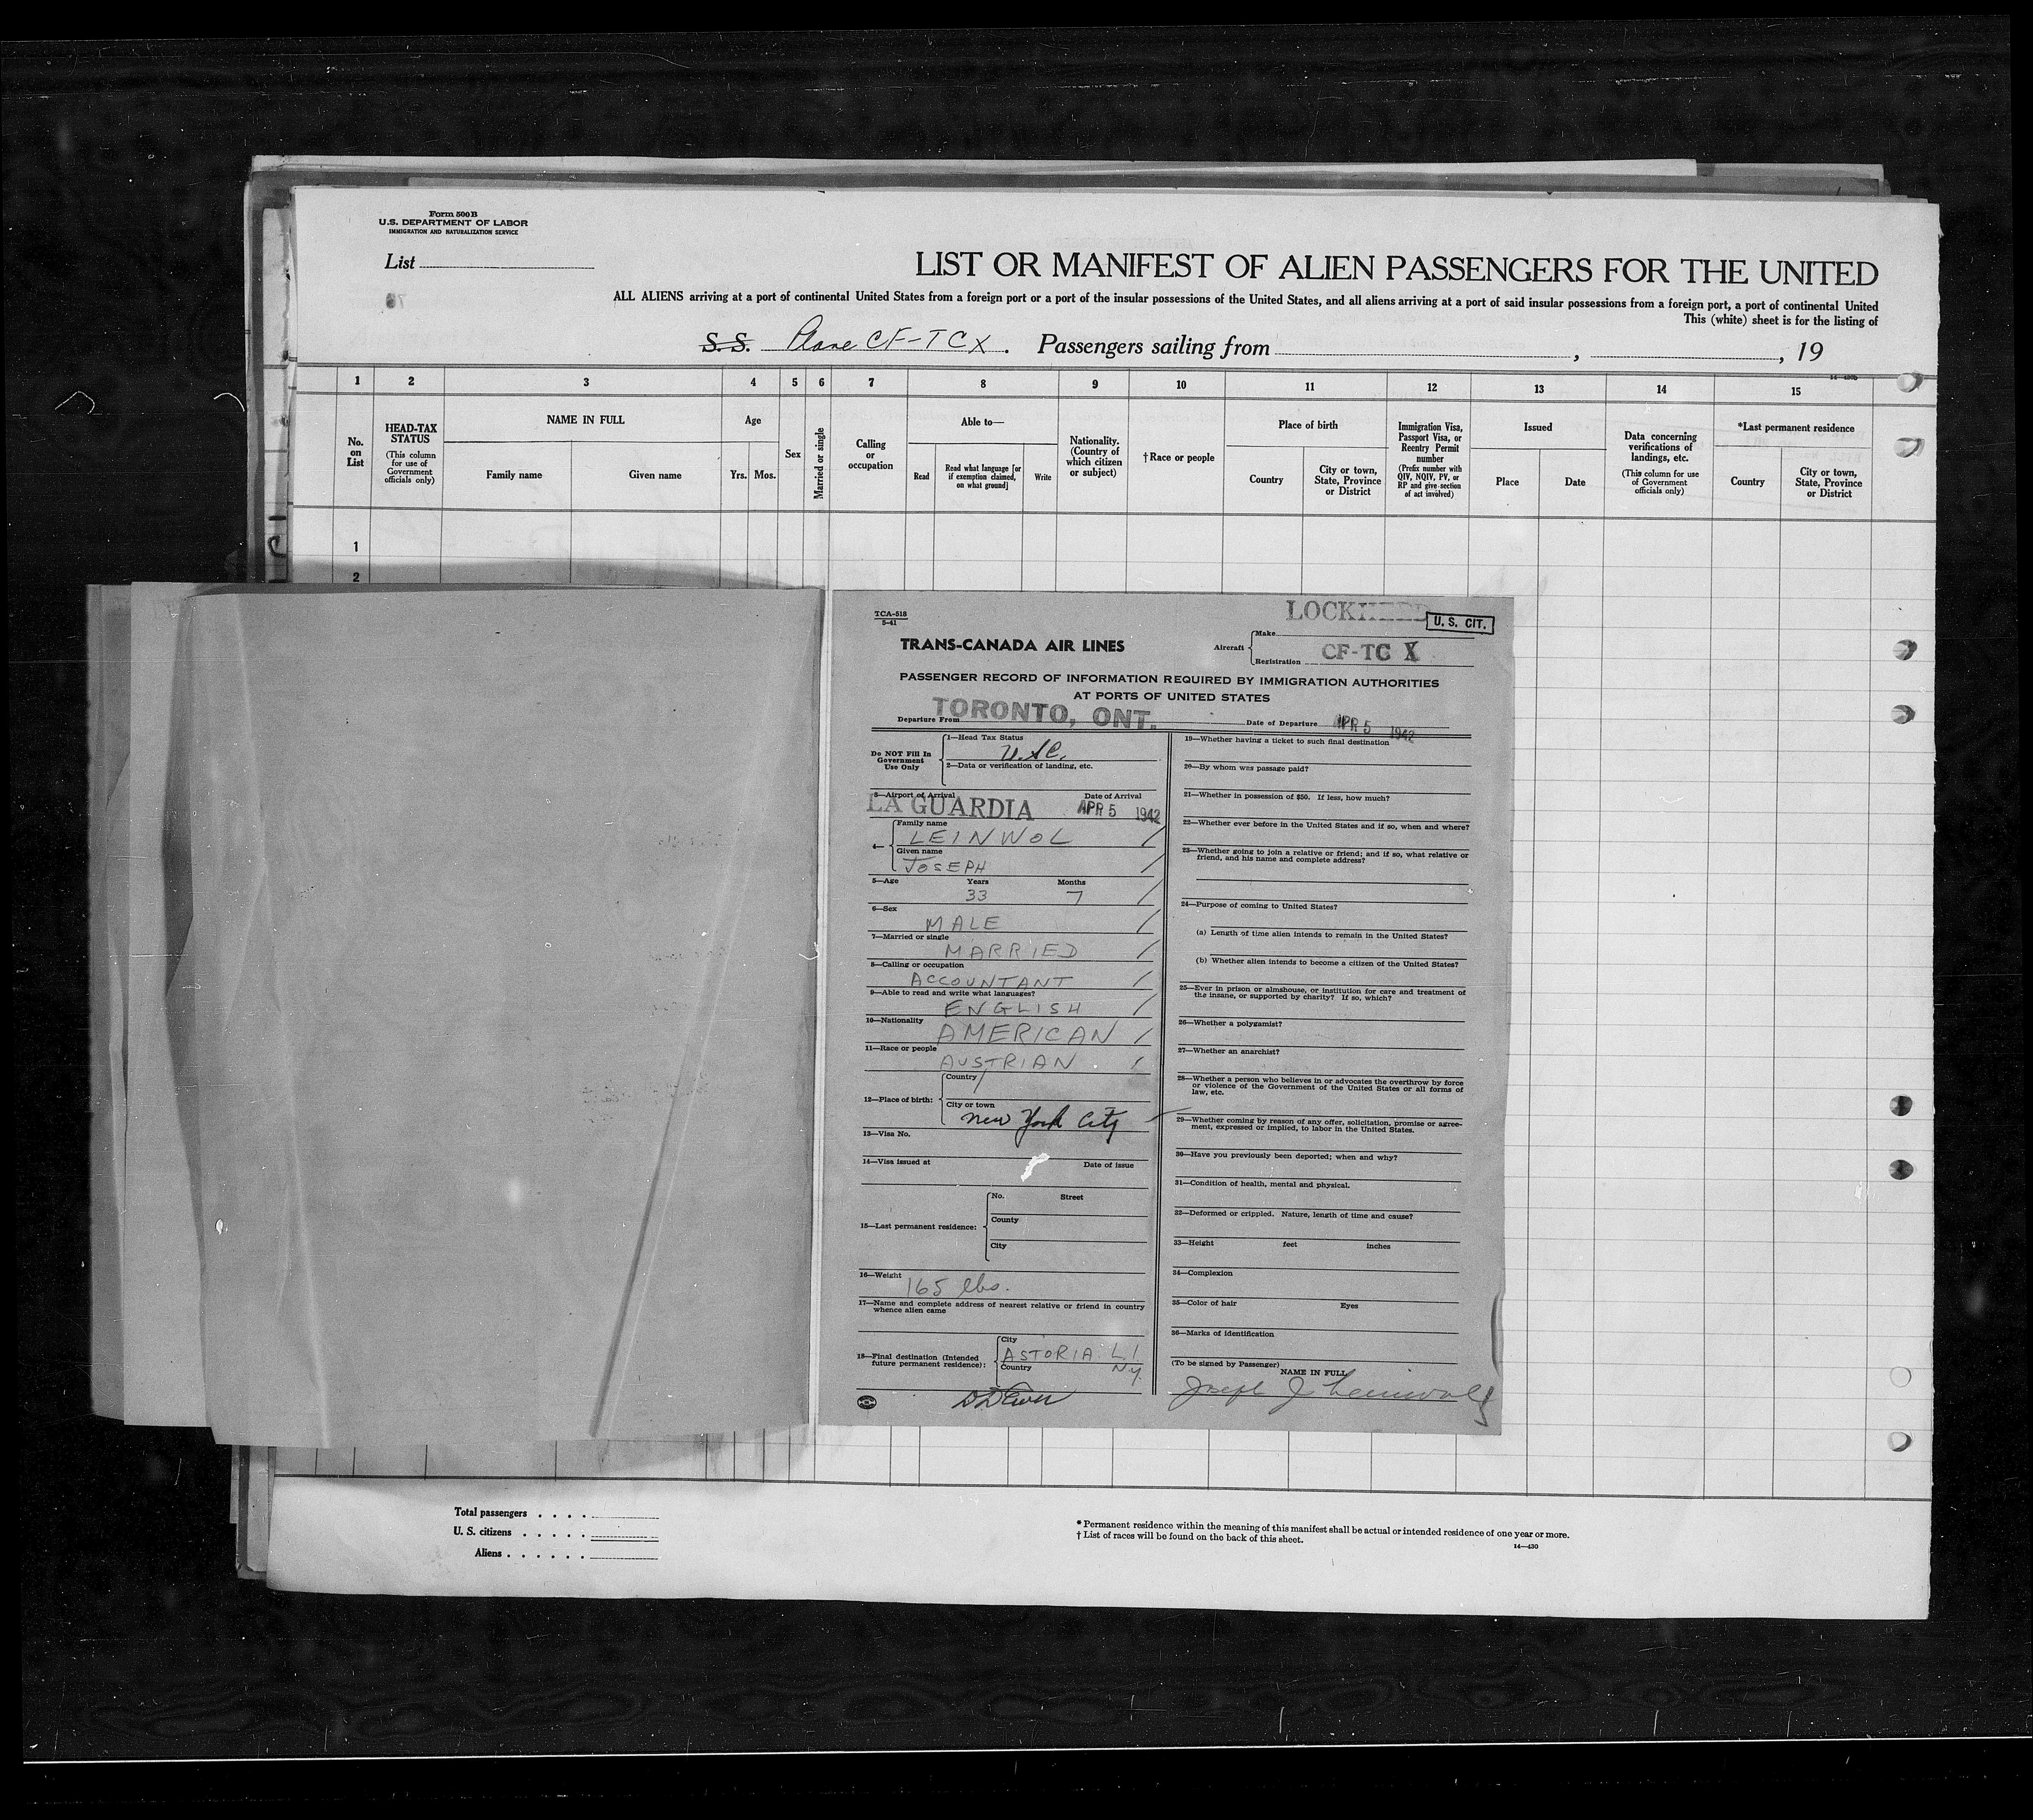 Form 500 B
U.S. DEPARTMENT OF LABOR
IMMIGRATION AND NATURALIZATION SERVICE
List
LIST OR MANIFEST OF ALIEN PASSENGERS FOR THE UNITED
ALL ALIENS arriving at a port of continental United States from a foreign port or a port of the insular possessions of the United States, and all aliens arriving at a port of said insular possessions from a foreign port, a port of continental United
This (white) sheet is for the listing of
S. S. Plane CF-TCX. Passengers sailing from , , 19
1 2 3 4 5 6 7 8 9 10 11 12 13 14 15
No. on List
HEAD-TAX STATUS
(This column for use of Government officials only)
NAME IN FULL
Family name Given name
Age
Yrs. Mos.
Sex
Married or single
Calling or occupation
Able to—
Read
Read what language [or if exemption claimed, on what ground]
Write
Nationality. (Country of which citizen or subject)
†Race or people
Place of birth
Country
City or town, State, Province or District
Immigration Visa, Passport Visa, or Reentry Permit number
(Prefix number with QIV, NQIV, PV, or RP and give section of act involved)
Issued
Place Date
Data concerning verifications of landings, etc.
(This column for use of Government officials only)
*Last permanent residence
Country
City or town, State, Province or District
1
2
TCA-518
5-41
LOCKHEED
U. S. CIT.
TRANS-CANADA AIR LINES
Aircraft
Make
Registration CF-TC X
PASSENGER RECORD OF INFORMATION REQUIRED BY IMMIGRATION AUTHORITIES
AT PORTS OF UNITED STATES
Departure From TORONTO, ONT. Date of Departure APR 5 1942
Do NOT Fill In Government Use Only
1—Head Tax Status
U.S.C.
2—Data or verification of landing, etc.
3—Airport of Arrival Date of Arrival
LA GUARDIA APR 5 1942
4—
Family name
LEINWOL
Given name
JOSEPH
5—Age Years Months
33 7
6—Sex
MALE
7—Married or single
MARRIED
8—Calling or occupation
ACCOUNTANT
9—Able to read and write what languages?
ENGLISH
10—Nationality
AMERICAN
11—Race or people
AUSTRIAN
12—Place of birth:
Country
City or town
New York City
13—Visa No.
14—Visa issued at Date of issue
15—Last permanent residence:
No. Street
County
City
16—Weight
165 lbs.
17—Name and complete address of nearest relative or friend in country
whence alien came
18—Final destination (Intended
future permanent residence):
City
ASTORIA L.I.
Country N.Y.
19—Whether having a ticket to such final destination
20—By whom was passage paid?
21—Whether in possession of $50. If less, how much?
22—Whether ever before in the United States and if so, when and where?
23—Whether going to join a relative or friend; and if so, what relative or
friend, and his name and complete address?
24—Purpose of coming to United States?
(a) Length of time alien intends to remain in the United States?
(b) Whether alien intends to become a citizen of the United States?
25—Ever in prison or almshouse, or institution for care and treatment of
the insane, or supported by charity? If so, which?
26—Whether a polygamist?
27—Whether an anarchist?
28—Whether a person who believes in or advocates the overthrow by force
or violence of the Government of the United States or all forms of
law, etc.
29—Whether coming by reason of any offer, solicitation, promise or agree-
ment, expressed or implied, to labor in the United States.
30—Have you previously been deported; when and why?
31—Condition of health, mental and physical.
32—Deformed or crippled. Nature, length of time and cause?
33—Height feet inches
34—Complexion
35—Color of hair Eyes
36—Marks of identification
(To be signed by Passenger)
NAME IN FULL
Joseph J Leinwol
Total passengers
U. S. citizens
Aliens
* Permanent residence within the meaning of this manifest shall be actual or intended residence of one year or more.
† List of races will be found on the back of this sheet.
14—430